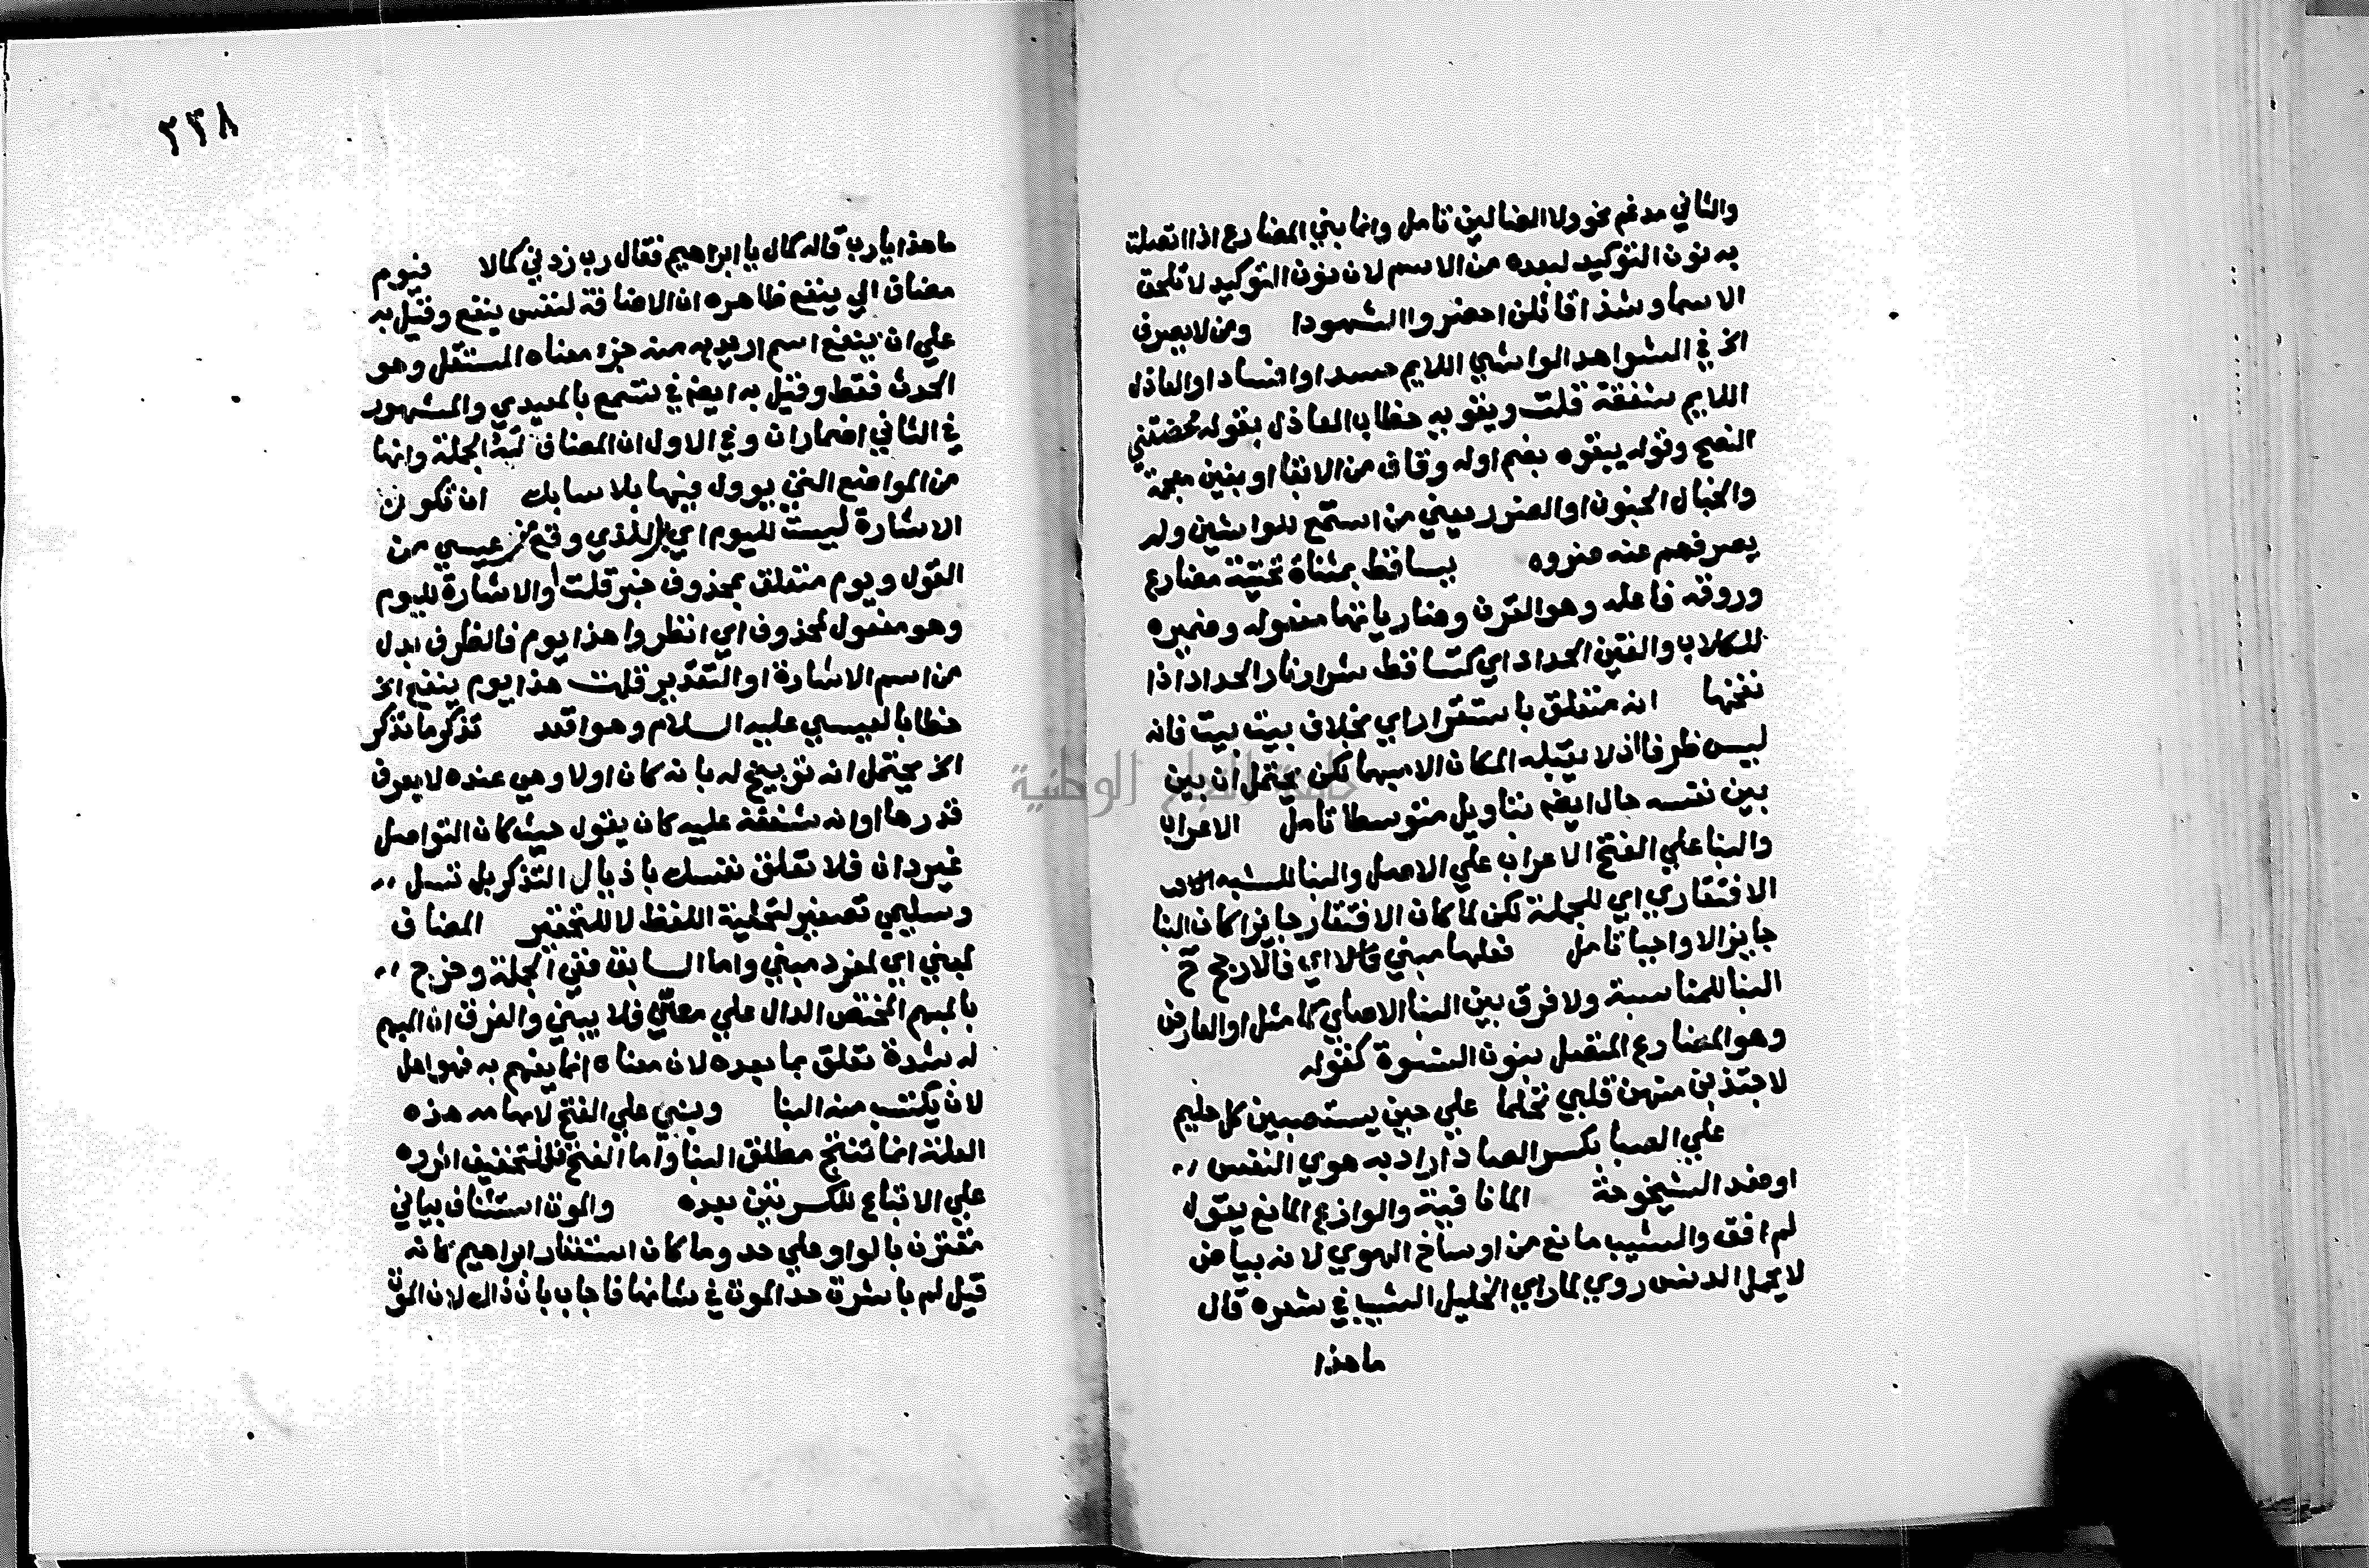 والثاني مدغم نحو ولا الضالين تامل وانما بني المضارع اذا اتصلت
به نون التوكيد لبعده من الاسم لان نون التوكيد لا تلحق
الاسما وشذ اقائلن احضروا الشهودا ومن لا يصرف
الخ في الشواهد الواشي اللايم حسدا او افسادا والعاذل
اللايم شفقة قلت وينوبه خطاب العاذل بقوله محضتني
النصح وقوله يبقوه بضم اوله وقاف من الابقا او بغين معجمة
والخبال الجنون او الضرر يعني من استمع للواشين ولم
يصرفهم عنه ضروه يساقط بمثناة تحتية مضارع
وروقه فاعله وهو القرن وضارياتها مفعوله وضميره
للكلاب والقين الحداد اي كتساقط شرار نار الحداد اذا
نفخها انه متعلق باستقرار اي بخلاف بيت بيت فانه
ليس ظرفا اذ لا يقبله المكان الا مبهما لكن يحتمل ان بين
بين نفسه حال ايضم بتاويل متوسطا تامل الاعراب
والبنا علي الفتح الاعراب علي الاصل والبنا للشبه
الافتقاري اي للجملة لكن لما كان الافتقار جايزا كان البنا
جايزا لا واجبا تامل فعلها مبني قالا اي فالارجح ح
البنا للمناسبة ولا فرق بين البنا الاصلي كما مثل او العارض
وهو المضارع المتصل بنون النسوة كقوله
لاجتذبن منهن قلبي تحلما علي حين يستصبين كل حليم
علي الصبا بكسر الصاد اراد به هوي النفس
او ضد الشيخوخة الما نافية والوازع المانع يقول
لم افق والشيب مانع من اوساخ الهوي لانه بياض
لا يحمل الدنس روي لما راي الخليل الشيب في شعره قال
ما هذا
٢٣٨
ما هذا يارب قاله كمال يا ابراهيم فقال رب زدني كمالا فيوم
مضاف الي ينفع ظاهره ان الاضافة لنفس ينفع وقيل به
علي ان ينفع اسم اريد به منه جزء معناه المستقل وهو
الحدث فقط وقيل به ايضم في تسمع بالمعيدي والمشهور
في الثاني اضمار ان وفي الاول ان المضاف اليه الجملة وانها
من المواضع التي يوول فيها بلا سابك ان تكون
الاشارة ليست لليوم اي للذي وقع من عيسي من
القول ويوم متعلق بمحذوف خبر قلت او الاشارة لليوم
وهو مفعول لمحذوف اي انظروا هذا يوم فالظرف بدل
من اسم الاشارة او التقدير قلت هذا يوم ينفع الخ
خطابا لعيسي عليه السلام وهو اقعد تذكر ما تذكر
الخ يحتمل انه توبيخ له بانه كان اولا وهي عنده لا يعرف
قدرها او انه شفقة عليه كان يقول حيث كان التواصل
غير دان فلا تعلق نفسك باذيال التذكر بل تسل
وسليمي تصغير لتحلية اللفظ لا للتحقير المضاف
لمبني اي لمفرد مبني واما السابق ففي الجملة وخرج
بالمبهم المختص الدال علي معين فلا يبني والفرق ان المبهم
له شدة تعلق بما بعده لان معناه انما يفهم به فهو اهل
لان يكتسب منه البنا وبني علي الفتح لابهامه هذه
العلة انما تنتج مطلق البنا واما الفتح فللتخفيف
علي الاتباع للكسرتين بعده والموت استئناف بياني
مقترن بالواو علي حد وما كان استغفار ابراهيم كانه
قيل لم باشرت حد الموت في شانها فاجاب بان ذاك لان الموت
جامعة النجاح الوطنية